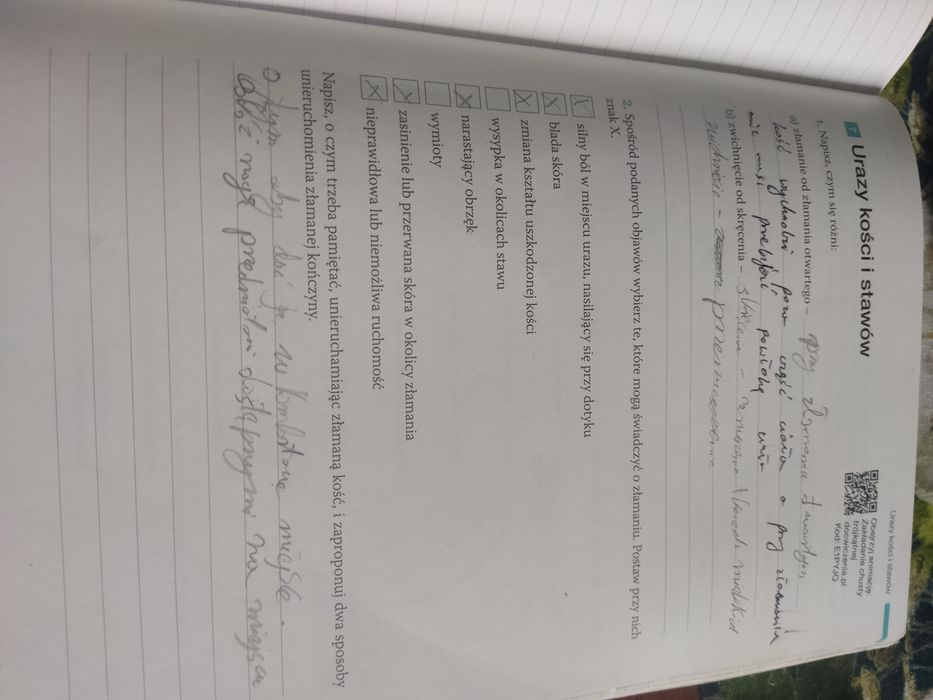 Urazy kości i stawów
7 Urazy kości i stawów
Obejrzyj animację:
Zakładanie chusty
trójkątnej
docwiczenia.pl
Kod: E1PYJQ
1. Napisz, czym się różni:
a) złamanie od złamania otwartego – przy złamaniu otwartym
kość wychodzi poza część ciała a przy złamaniu
nie musi przebijać powłoki
b) zwichnięcie od skręcenia – skręcenie – naruszenie tkanek miękkich
zwichnięcie – przemieszczenie
2. Spośród podanych objawów wybierz te, które mogą świadczyć o złamaniu. Postaw przy nich
znak X.
X silny ból w miejscu urazu, nasilający się przy dotyku
X blada skóra
X zmiana kształtu uszkodzonej kości
wysypka w okolicach stawu
X narastający obrzęk
wymioty
X zasinienie lub przerwana skóra w okolicy złamania
X nieprawidłowa lub niemożliwa ruchomość
Napisz, o czym trzeba pamiętać, unieruchamiając złamaną kość, i zaproponuj dwa sposoby
unieruchomienia złamanej kończyny.
O tym aby dać ją w komfortowe miejsce
nogę przedmiotami dostępnymi na miejscu